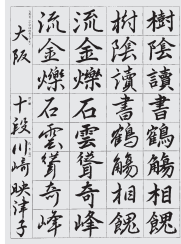 樹陰讀書鶴觴相餽
樹陰讀書鶴觴相餽
流金爍石雲聳奇峰
流金爍石雲聳奇峰
大阪 十段 川崎映津子